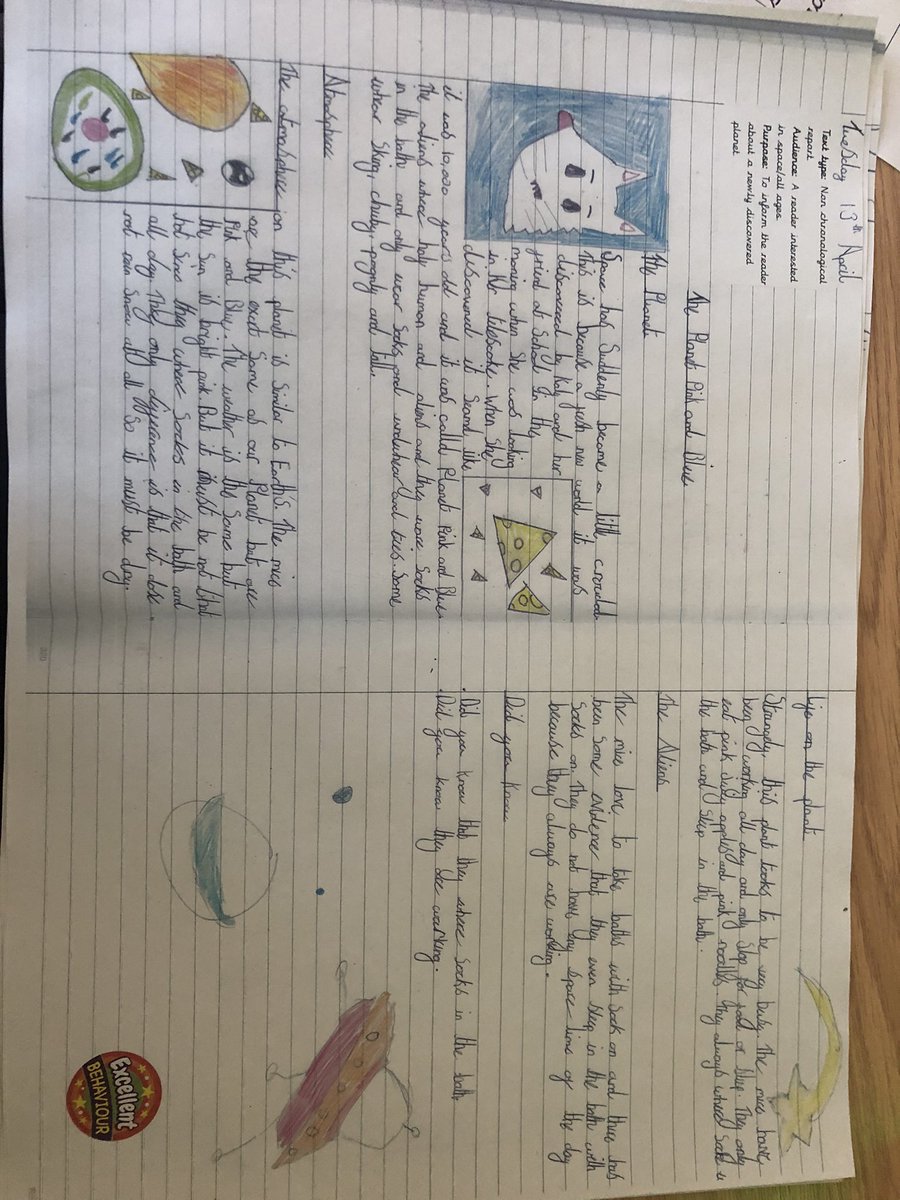 Tuesday 13th April
Text type: Non chronological
report
Audience: A reader interested
in space/all ages
Purpose: To inform the reader
about a newly discovered
planet
The Planet Pink and Blue
The Planet
Space has suddenly become a little crowded
this is because a new world it was
discovered by and her
friend at School in the
moning when she was looking
in her . When she
discovered it seamd like
it was 10,000 years old and it was called Planet Pink and Blue.
The aliens where haly human and aliens and they wore Socks
in the bath and only wear Socks and and ties. Some
where Skiny, chuby, and tall.
Atmosphere
The on this planet is Similar to Earth's. The mics
are the exact Same as our Planet but are
Pink and Blue. The weather is the Same but
the Sun is bright pink. But it must be not that
hot Sins they where Sockes in the bath and
all day. They only difference is that it dose
not rain Snow at all So it must be dry.
Life on the plant
Stranely, this plant looks to be very busy. The mice have
being working all day and only Stop for food or Sleep. They only
eat pink apples and pink noodles they always Sock's
the bath and Sleep in the bath.
The Aliens
The mice love to take baths with Sock on and there has
been Some evidence that they even Sleep in the bath with
Socks on. They do not have any Space of the day
because they always are working.
Did you know
. Did you know that they where Socks in the bath
. Did you know they working.
Excellent
BEHAVIOUR